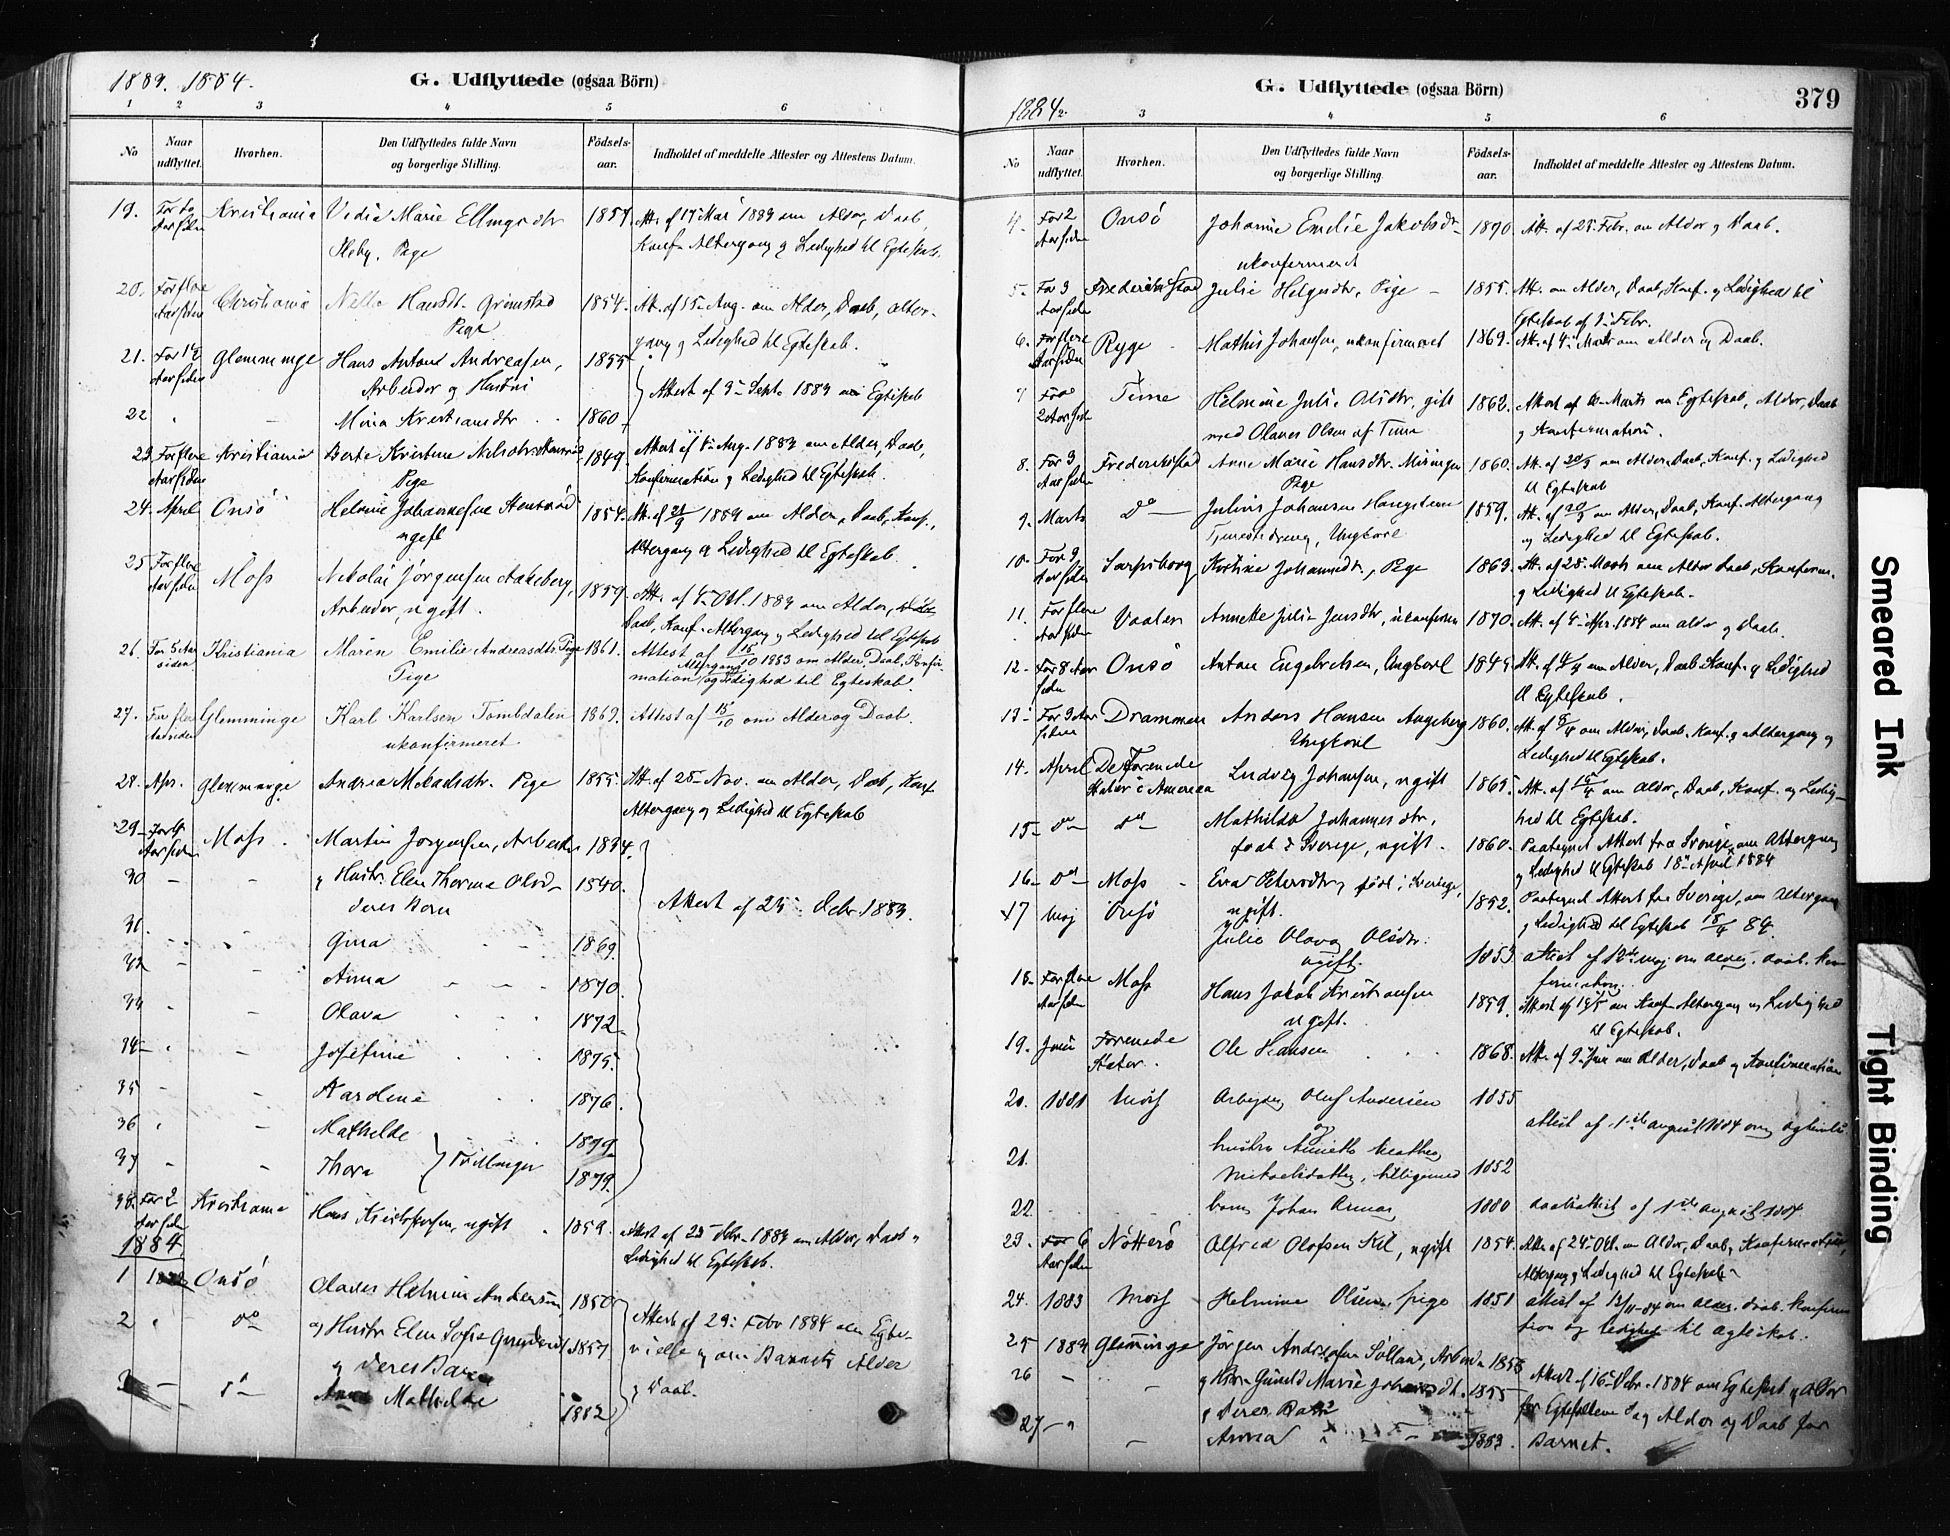 1883. 1884.
G. Udflyttede (ogsaa Börn)
1 2 3 4 5 6
No
Naar udflyttet.
Hvorhen.
Den Udflyttedes fulde Navn og borgerlige Stilling.
Födsels-aar.
Indholdet af meddelte Attester og Attestens Datum.
19. For to Aar siden Kristiania Marie Ellingsdtr 1857. Att. af 17 Mai 1883 om Alder, Daab,
Pige Konf. Altergang og Ledighed til Egteskab.
20. For flere Aar siden Christiania Hansdtr. Grimstad 1854. Att. af 15 Aug. om Alder, Daab, Alter-
Pige gang og Ledighed til Egteskab.
21. For 1½ Aar siden Glemminge Hans Anton Andreasen, 1855
Arbeider og Hustru Attest af 3 Sept. 1883 om Egteskab
22 Mina Kristiansdtr 1860
23 For flere Aar siden Kristiania Berte Kristine 1849. Attest af Aug. 1883 om Alder, Daab,
Pige Konfirmation og Ledighed til Egteskab.
24. April Onsö Helmine Johannesen 1854. Att. af 21/9 1883 om Alder, Daab, Konf.,
ugift Altergang og Ledighed til Egteskab.
25 For flere Aar siden Moss Nikolai Jörgensen Aakeberg, 1859. Att. af Okt. 1883 om Alder,
Arbeider, ugift. Daab, Konf. Altergang og Ledighed til Egteskab
26. For 5 Aar siden Kristiania Maren Emilie Andreasdtr. Pige 1861. Attest af 15/10 1883 om Alder, Daab, Konfir-
Pige Altergang
mation og Ledighed til Egteskab.
27. For flere Aar siden Glemminge Karl Karlsen Tombdalen 1869. Attest af 15/10 om Alder og Daab.
ukonfirmeret
28. Apr. Glemminge Andrea Mikaelsdtr. Pige 1855. Att. af 25 Nov. om Alder, Daab, Konf.
Altergang og Ledighed til Egteskab
29 Aar siden Moss. Martin Jörgensen, Arbeider 1834.
30 og Hustr. Elen Thorine Olsd 1840.
deres Børn Attest af 23 Debr 1883.
31. Gina 1869.
32 Anna 1870.
33 Olava 1872
34 Josefine 1875.
35 Karoline 1876.
36 Mathilde 1879
Tvillinger
37 Thora 1879.
38. For 2 Aar siden Kristiania Hans Kristofersen, ugift 1859. Attest af 23 Debr. 1883 om Alder, Daab og
Ledighed til Egteskab.
1884
1 Onsö Olaves Helmin Andersen 1850
2 do og Hustr Elen Sofie 1857 Attest af 29 Febr 1884 om Egte-
og deres Barn vielse og om Barnets Alder
3 do Anna Mathilde 1882 og Daab.
1884.
G. Udflyttede (ogsaa Börn)
379
3 4 5 6
No
Naar udflyttet.
Hvorhen.
Den Udflyttedes fulde Navn og borgerlige Stilling.
Födsels-aar.
Indholdet af meddelte Attester og Attestens Datum.
4. For 2 Aar siden Onsö Johanne Emilie Jakobsdtr 1870. Att. af 25 Febr. om Alder og Daab.
ukonfirmeret
5. For 3 Aar siden Frederikstad Julie Helgesdtr. Pige 1855. Att. om Alder, Daab, Konf. og Ledighed til
Egteskab af Febr.
6. For flere Aar siden Rygge Mathis Johansen, ukonfirmeret 1869. Att. af 4 Marts om Alder og Daab.
7 For 2 Aar siden Tune Helmine Julie Olsdtr. gift 1862. Attest af Marts om Egteskab, Alder, Daab
med Olaves Olsen af Tune og Konfirmation.
8. For 3 Aar siden Frederikstad Anne Marie Hansdtr. 1860. Att. af 20/3 om Alder, Daab, Konf. og Ledighed
Pige til Egteskab
9. Marts do Julius Johansen 1859. Att. af 20/3 om Alder, Daab, Konf. Altergang
Tjenestedreng, Ungkarl og Ledighed til Egteskab.
10. Aar siden Sarpsborg Kristine Johannesdtr, Pige 1863. Att. af 28 Marts om Alder Daab, Konfirm.
og Ledighed til Egteskab.
11. For flere Aar siden Vaaler Annette Julie Jensdtr, ukonfirm 1870. Att. af 4 Apr. 1884 om Alder og Daab.
12. For 8 Aar siden Onsö Anton Engebretsen, Ungkarl 1845 Att. af om Alder, Daab Konf. og Ledighed
til Egteskab.
13 For 3 Aar siden Drammen Anders Hansen 1860. Att. af om Alder, Daab, Konf. og Altergang og
Ungkarl Ledighed til Egteskab.
14. April De Forenede Stater i Amerika Ludvig Johansen, ugift 1865. Att. af 15/4 om Alder, Daab, Konf. og Ledig-
hed til Egteskab.
15 do do Mathilda Johannesdtr,
født i Sverige, ugift. 1860. Paategnet Attest fra Sverige om Altergang
og Ledighed til Egteskab 18 April 1884
16 do Moss Eva Petersdtr, født i Sverige, 1852. Paategnet Attest fra Sverige, om Altergang
ugift. og Ledighed til Egteskab 18/4 84.
17 Maj Onsö Julie Olava Olsdtr. 1853 attest af maj om alder, daab, kon
ugift. firmation.
18. For flere Aar siden Moss Hans Jakob Kristiansen 1859. Attest af om Konf. Altergang og Ledighed
ugift. til Egteskab.
19. Juni Forenede Stater. Ole Hansen 1868. Att. af 9 Juni om Alder, Daab og Konfirmation
20. 1881 Moss Arbejder Oluf Andersen 1855
og attest af 1ste august 1884 om
21. hustru Annette 1852
Mikaelsdatter, tilligemed
22. barn Johan 1880 daabsattest af 1ste august 1884
23. For 6 Aar siden Nötterö Alfred Olofsen Kil, ugift 1854. Att. af 24 Okt. om Alder, Daab, Konfirmation,
Altergang og Ledighed til Egteskab
24. 1883 Moss Helmine Olsen, pige 1851 attest af 13/11-84 om alder, daab, konfirma
tion og ledighed til egteskab.
25 1883 Glemminge Jörgen Andreasen Arbeider 1856
26 og Hstr. Gunild Marie Johannesdt. 1855 Attest af 16 Debr. 1884 om Egteskab og Alder
og deres Barn for Egtefolkene og Alder og Daab for
27 Anna 1883. Barnet.
Smeared Ink
Tight Binding